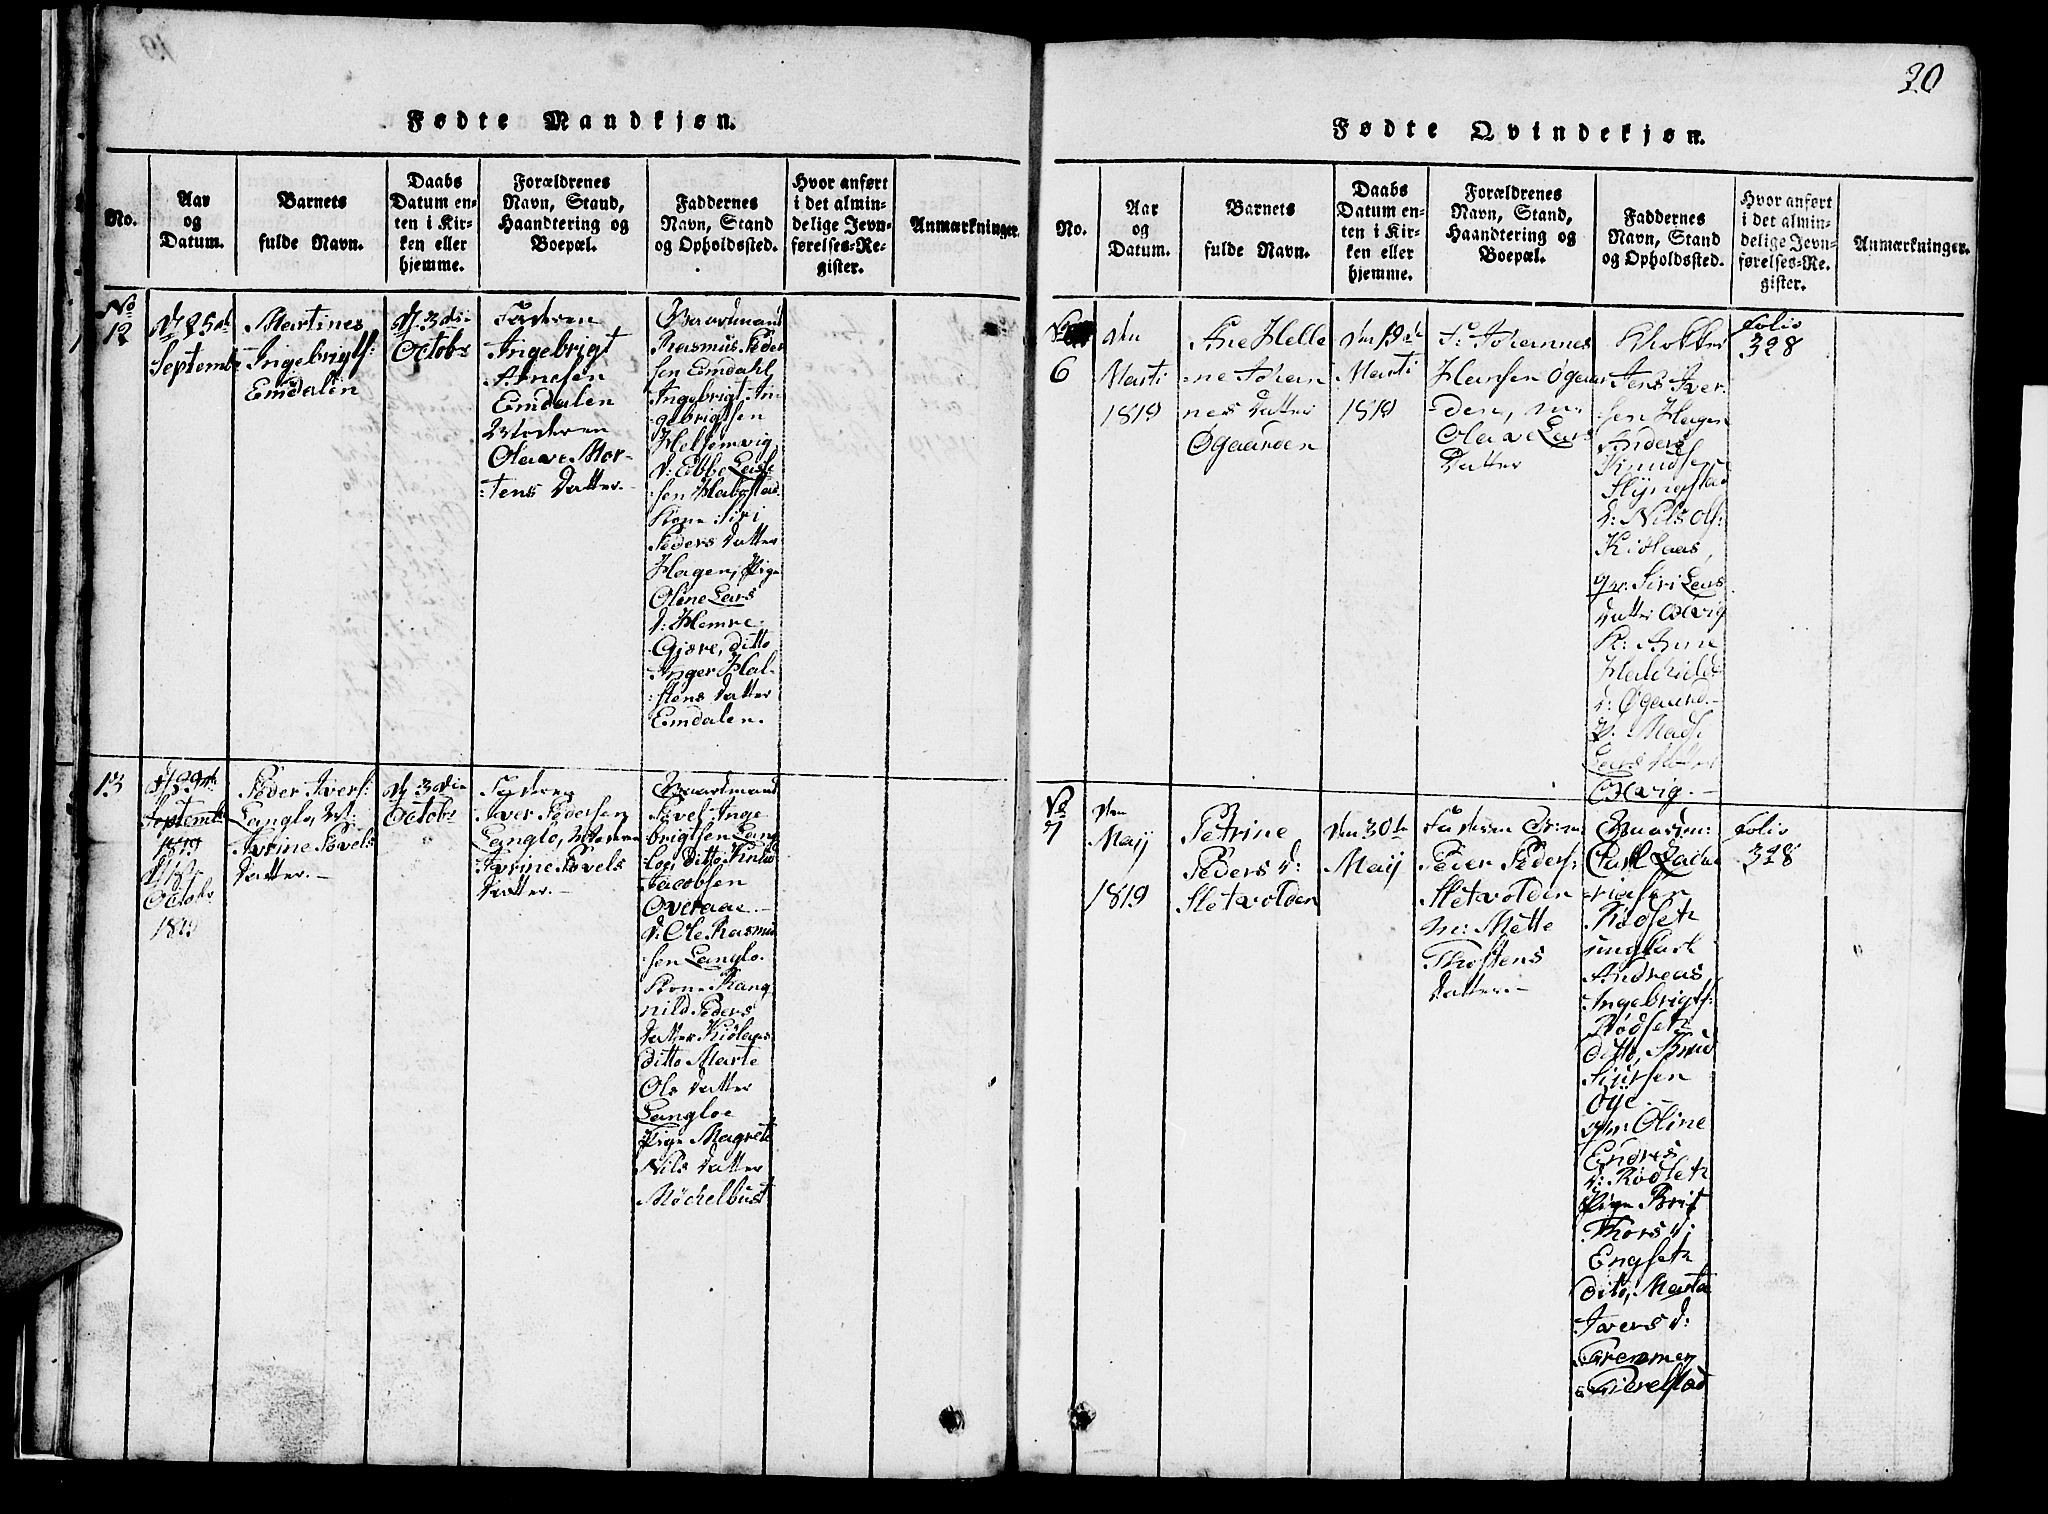 Fødte Mandkjøn.
No.
Aar
og
Datum.
Barnets
fulde Navn.
Daabs
Datum en-
ten i Kir-
ken eller
hjemme.
Forældrenes
Navn, Stand,
Haandtering og
Boepæl.
Faddernes
Navn, Stand
og Opholdssted.
Hvor anført
i det almin-
delige Jevn-
førelses-Re-
gister.
Anmærkninger.
No
12
25
Septembr
Martines
Ingebrigts:
Emdalen
3die
Octobr
Faderen
Ingebrigt
Arnesen
Emdalen
Moderen
Olave Mor-
tens Datter.
Gaardmand
Rasmus Peder
sen Emdahl
Ingebrigt In-
gebrigtsen
Helsemvig
D: Ebbe Lars
sen Habostad
Kone Siri
Peders Datter
Hagen, Pige
Oline Lars
D: Hemre
Gjære, ditto
Inger Hal-
stens Datter
Emdalen.
13
Septemb
1819
Octobr
1819
Peder Ivers:
Langlo, M:
Datter.
3die
Octobr
Faderen
Iver Pedersen
Langlo, Moderen
Povels
Datter.
Gaardmand
Povel Inge
brigtsen Lang
loe ditto Knud
Jacobsen
Overaae
D: Ole Rasmu
sen Langlo.
Kone Rang
nild Peders
Datter Kiølaas
ditto Marte
Ols Datter
Langloe
Pige Magrete
Nils Datter
Møchelbust
20
Fødte Qvindekjøn.
No.
Aar
og
Datum.
Barnets
fulde Navn.
Daabs
Datum en-
ten i Kir-
ken eller
hjemme.
Forældrenes
Navn, Stand,
Haandtering og
Boepæl.
Faddernes
Navn, Stand
og Opholdssted.
Hvor anført
i det almin-
delige Jevn-
førelses-Re-
gister.
Anmærkninger.
6
den
Marti
1819
Ane Helle
ne Johan
nes Datter
Øgaarden
den 19de
Marti
1819
F: Johannes
Hansen Øgaar
den, M:
Olave Lars
Datter
Klokker
Jens Iver
sen Hagen
Anders
Knudsen
Slyngstad
D: Nils Ols:
Kiølaas,
gr: Siri Lars
Datter
K: Anne
D: Øgaard
P: Mads
Lars
Folio
328
No
7
den
Maij
1819
Petrine
Peders D:
Sletvolden
den 30te
Maij
Faderen Gr:m:
Peder Peders:
Sletvolden
M: Mette
Thostens
Datter.
Gaardm:
Carl Zacha
riasen
Rødsetr
ungkarl
Andreas
Ingebrigts:
Rødsetr
ditto, Knud
Siursen
Øye
Oline
Endres
D: Rødsetr
Pige Brit
Thors D:
Engsetr
ditto, Marta
Ivers D:
Fremmer
Fierelstad
Folio
328